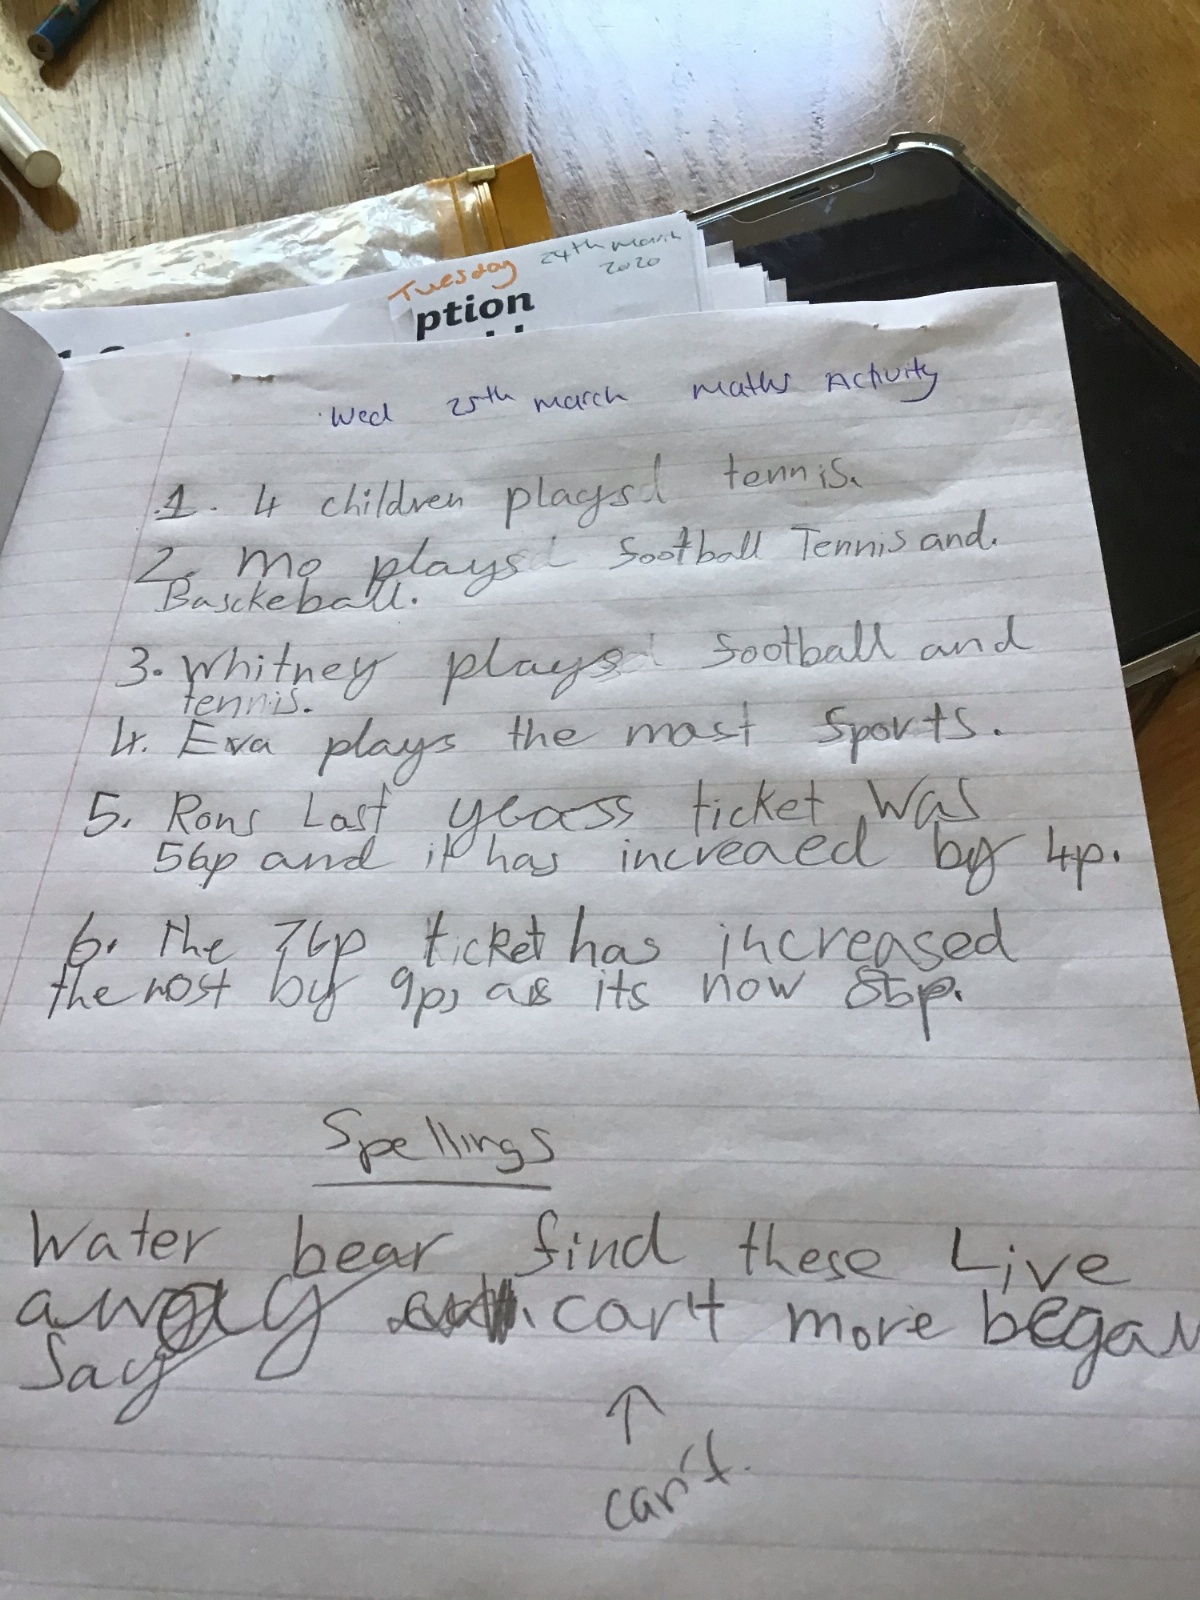 Tuesday 24th March
2020
ption
Wed 25th march maths Activity
1. 4 children plays tennis.
2. Mo plays football Tennis and.
Basckeball.
3. Whitney plays football and
tennis.
4. Eva plays the most Sports.
5. Rons Last years ticket was
56p and it has increaed by 4p.
6. The 76p ticket has increased
the most by 9p, as its now 85p.
Spellings
Water bear find these Live
away can't more began
Say
↑
can't.